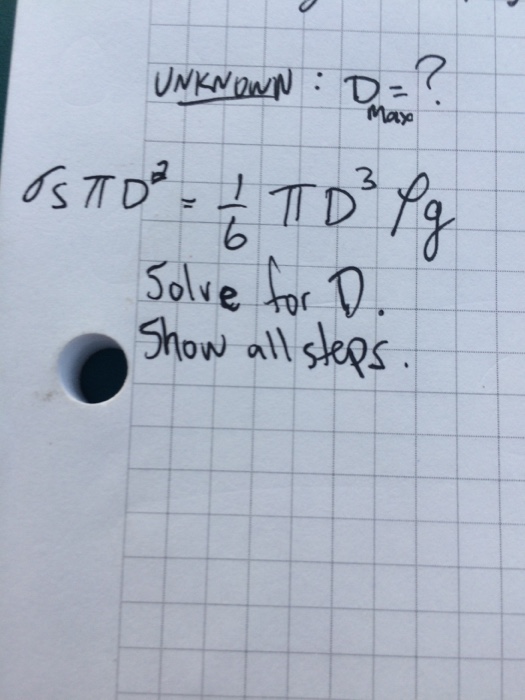 UNKNOWN : D Max = ?
σs π D² = 1/6 π D³ ρg
Solve for D.
Show all steps.